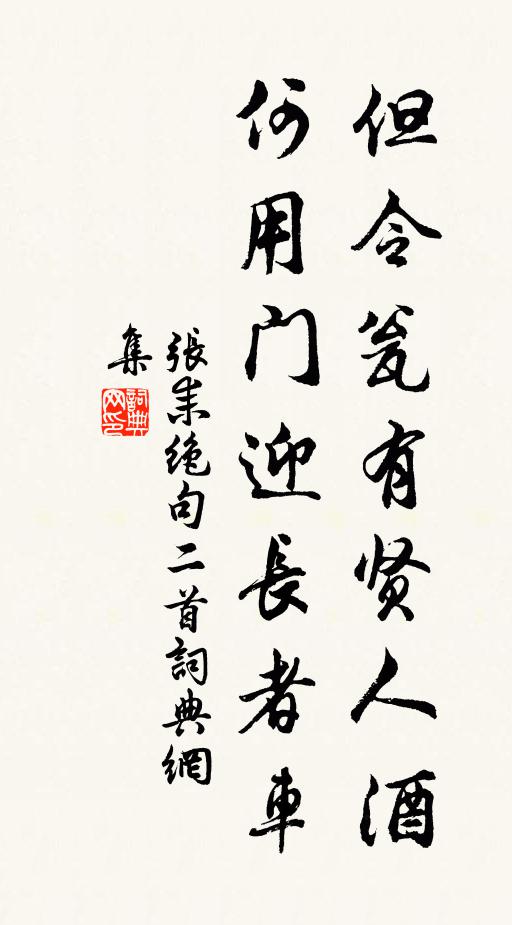 但令瓮有贤人酒
何用门迎長者車
張耒绝句二首詞典網
集
詞典
网印